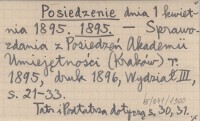 Posiedzenie dnia 1 kwiet-
nia 1895. 1895. — Sprawo-
zdania z Posiedzeń Akademii
Umiejętności (Kraków) r.
1895, druk 1896, Wydział III,
s. 21-33.
Tatr i Podtatrza dotyczą s. 30, 31.